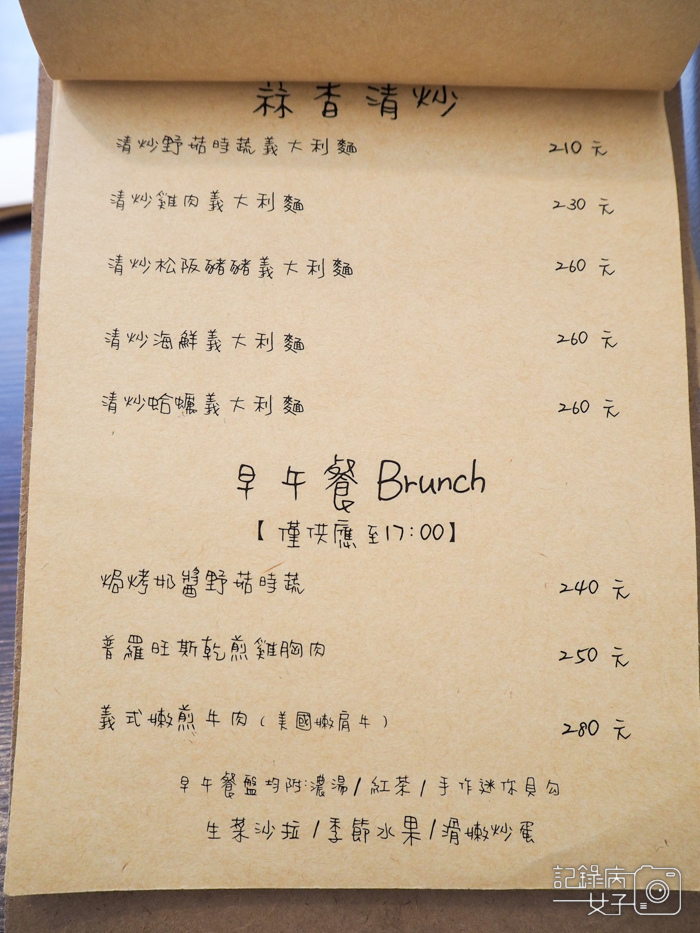 蒜香清炒
清炒野菇時蔬義大利麵 210元
清炒雞肉義大利麵 230元
清炒松阪豬豬義大利麵 260元
清炒海鮮義大利麵 260元
清炒蛤蠣義大利麵 260元
早午餐 Brunch
【僅供應至17:00】
焗烤奶醬野菇時蔬 240元
普羅旺斯乾煎雞胸肉 250元
義式嫩煎牛肉(美國嫩肩牛) 280元
早午餐盤均附:濃湯/紅茶/手作迷你貝勾
生菜沙拉/季節水果/滑嫩炒蛋
記錄病
女子